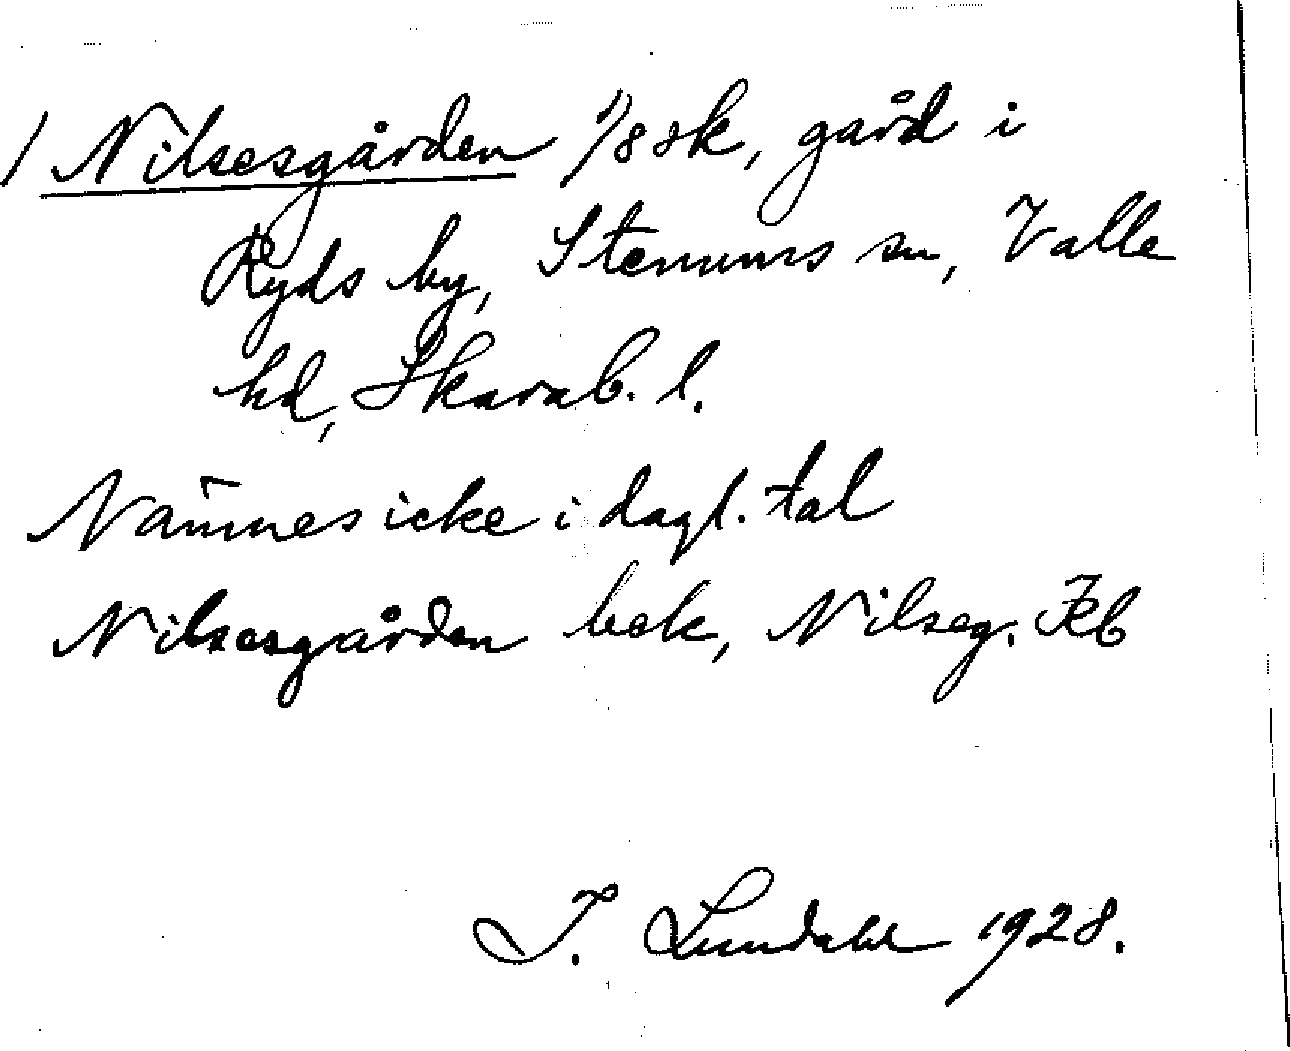 / Nilsesgården 1/8 sk, gård i
Ryds by, Stenums sn, Valle
hd, Skarab. l.
Nämnes icke i dagl. tal
Nilsesgården bek, Nilseg. Jb
I. Lundahl 1928.